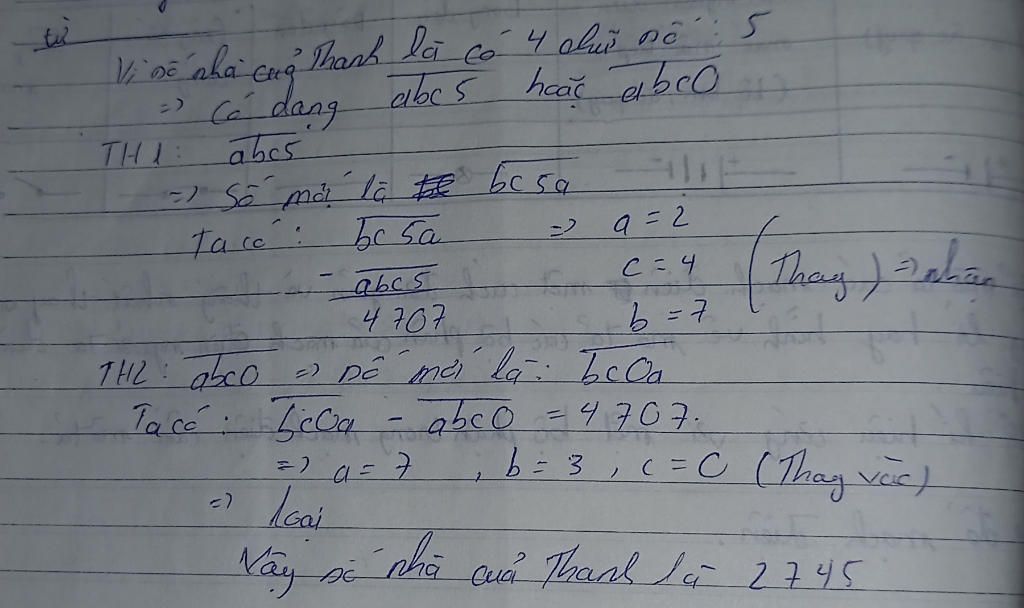 Vì số nhà của Thanh là có 4 chữ số ⋮ 5
=> Có dạng \overline{abc5} hoặc \overline{abc0}
TH1: \overline{abc5}
=> Số mới là \overline{bc5a}
Ta có: \overline{bc5a} => a = 2
- \overline{abc5} c = 4 (Thay) => nhận
4707 b = 7
TH2: \overline{abc0} => số mới là: \overline{bc0a}
Ta có: \overline{bc0a} - \overline{abc0} = 4707.
=> a = 7, b = 3, c = 0 (Thay vào)
=> loại
Vậy số nhà của Thanh là 2745